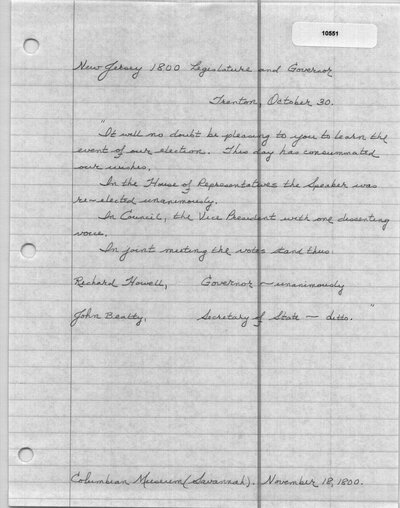 10551
New Jersey 1800 Legislature and Governor
Trenton, October 30.
"It will no doubt be pleasing to you to learn the
event of our election. This day has consummated
our wishes.
In the House of Representatives the Speaker was
re-elected unanimously.
In Council, the Vice President with one dissenting
voice.
In joint meeting the votes stand thus:
Richard Howell, Governor — unanimously
John Beatty, Secretary of State — ditto."
Columbian Museum (Savannah). November 18, 1800.